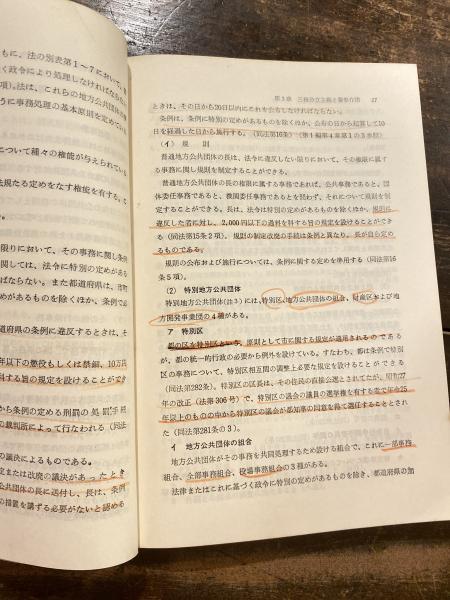 もに、法の別表第1～7において、普
く政令により処理しなければならない
項)。法は、これらの地方公共団体の事
うに事務処理の基本原則を定めてい
について種々の権能が与えられている
法規たる定めをなす権能を有する。こ
限りにおいて、その事務に関し条例
関しては、法令に特別の定めがある
ならない。また都道府県は、市町
めがあるものを除くほか、条例で必
道府県の条例に違反するときは、そ
年以下の懲役もしくは禁錮、10万円
科する旨の規定を設けることができ
から条例の定める刑罰の処罰手続
の裁判所によって行なわれる(同法
の議決によるものである。
定または改廃の議決があったとき
公共団体の長に送付し、長は、条例
の措置を講ずる必要がないと認める
第3章 三権分立主義と警察作用 27
ときは、その日から20日以内にこれを公布しなければならない。
条例は、条例に特別の定めがあるものを除くほか、公布の日から起算して10
日を経過した日から施行する。(同法第16条) (第1編第4章第1の3参照)
(イ) 規 則
普通地方公共団体の長は、法令に違反しない限りにおいて、その権限に属す
る事務に関し規則を制定することができる。
普通地方公共団体の長の権限に属する事務であれば、公共事務であると、団
体委任事務であると、機関委任事務であるとを問わず、それについて規則を制
定することができる。長は、法令に特別の定めがあるものを除くほか、規則に
違反した者に対し、2,000円以下の過料を科する旨の規定を設けることができ
る(同法第15条2項)。規則の制定改廃の手続は条例と異なり、長が自ら定め
るものである。
規則の公布および施行については、条例に関する定めを準用する(同法第16
条5項)。
(2) 特別地方公共団体
特別地方公共団体(注3)には、特別区、地方公共団体の組合、財産区および地
方開発事業団の4種がある。
ア 特別区
都の区を特別区といゝ、原則として市に関する規定が適用されるのである
が、都の統一的行政の必要から例外を設けている。すなわち、都は条例で特別
区の事務について、特別区相互間の調整上必要な規定を設けることができる
(同法第282条)。特別区の区長は、その住民の直接公選とされてたが、昭和27
年の改正(法第306号)で、特別区の議会の議員の選挙権を有する者で年令25
年以上のものの中から特別区の議会が都知事の同意を得て選任することとされ
た(同法第281条の3)。
イ 地方公共団体の組合
地方公共団体がその事務を共同処理するため設ける組合で、これに一部事務
組合、全部事務組合、役場事務組合の3種がある。
法律またはこれに基づく政令に特別の定めがあるものを除き、都道府県の加